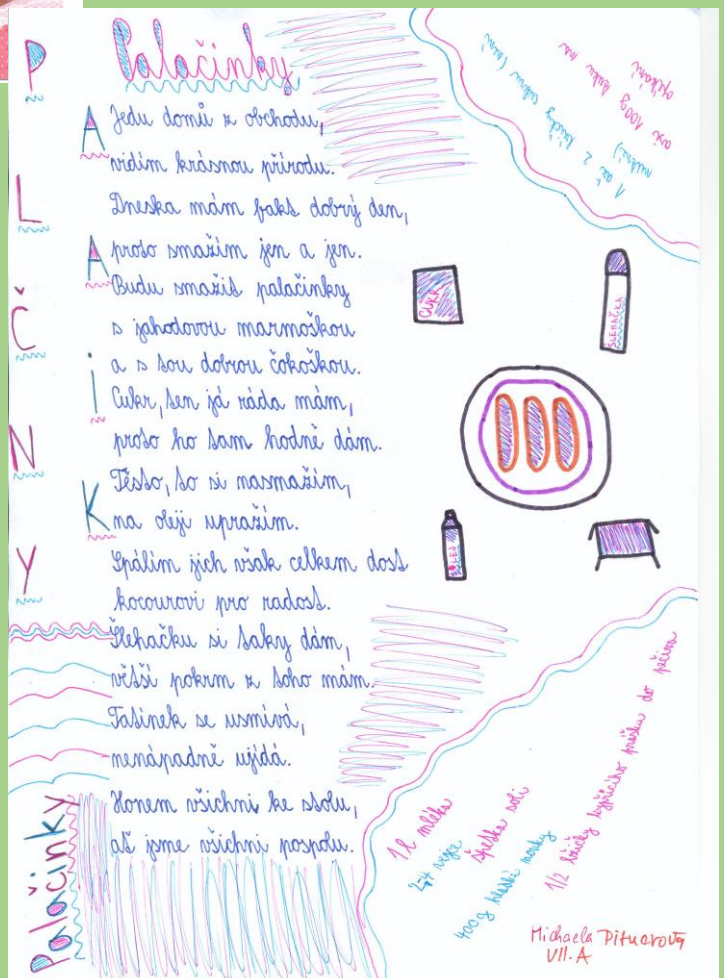 Palačinky
P
A
L
A
Č
I
N
K
Y
Jedu domů z obchodu,
vidím krásnou přírodu.
Dneska mám fakt dobrý den,
proto smažím jen a jen.
Budu smažit palačinky
s jahodovou marmoškou
a s tou dobrou čokoškou.
Cukr, ten já ráda mám,
proto ho tam hodně dám.
Těsto, to si nasmažím,
na oleji upražím.
Spálím jich však celkem dost
kocourovi pro radost.
Šlehačku si taky dám,
větší pokrm z toho mám.
Tatínek se usmívá,
nenápadně ujídá.
Honem všichni ke stolu,
ať jsme všichni pospolu.
Palačinky
1 až 2 lžičky cukru
asi 100g tuku na
CUKR
ŠLEHAČKA
1l mléka
2 vejce
špetka soli
400g hladké mouky
1/2 lžičky kypřícího prášku do pečiva
Michaela
VII.A